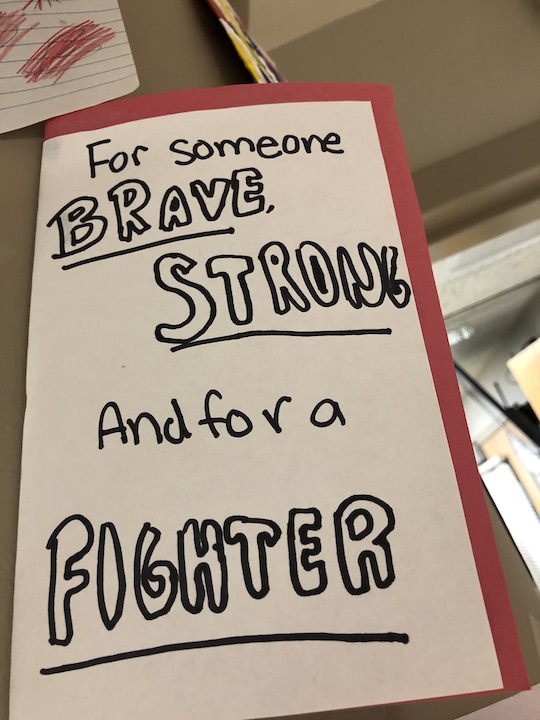 For someone
BRAVE,
STRONG
And for a
FIGHTER